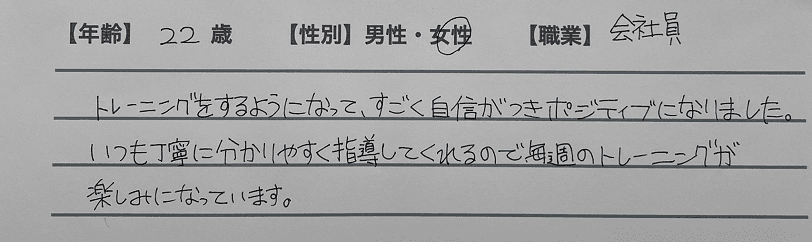 【年齢】 22 歳 【性別】男性・女性 【職業】 会社員
トレーニングをするようになって、すごく自信がつきポジティブになりました。
いつも丁寧に分かりやすく指導してくれるので毎週のトレーニングが
楽しみになっています。